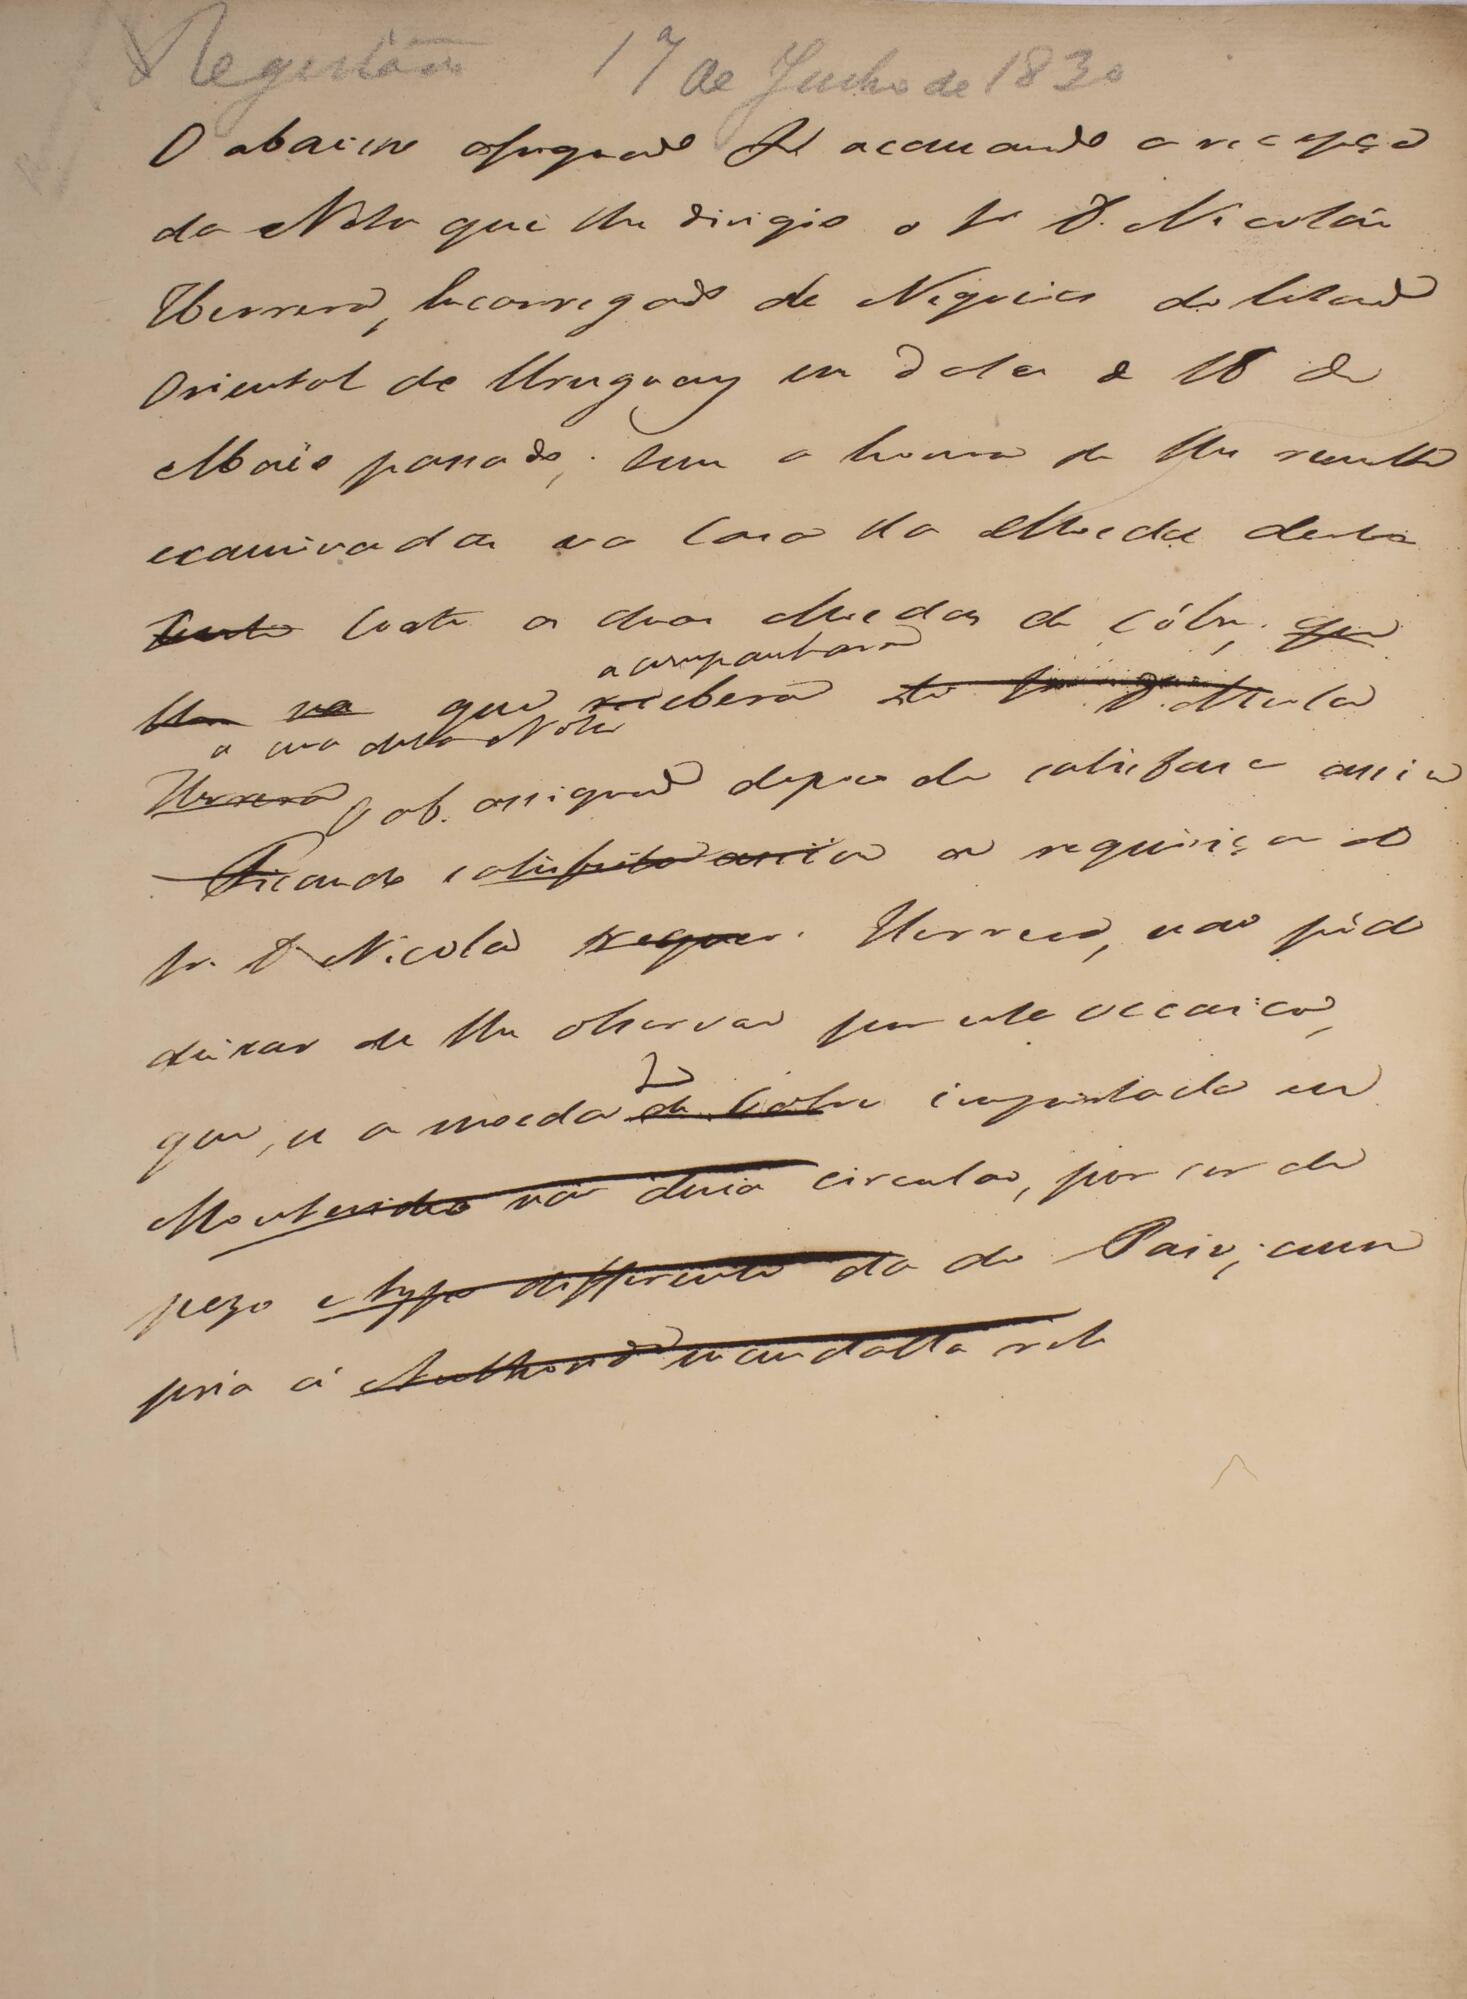 17 de Junho de 1830
O abaixo assignado accusando a recepção
da Nota que lhe dirigio o Sr D. Nicolás
Herrera, Encarregado de Negocios do Estado
Oriental do Uruguay em data de 18 de
Maio passado; tem a honra de lhe remetter
examinadas na Casa da Moeda desta
Corte as duas Moedas de Cóbre, que
lhe na que receberá acompanharão do Sr. D. Nicolas
a sua dita Nota
Herrera O ab. assignado depois de satisfazer assim
Ficando satisfeita assim a requisição do
Sr. D. Nicolas Herrera, não póde
deixar de lhe observar por esta occasião,
que, se a moeda de Cobre importada em
Montevideo não devia circular, por ser de
pezo e typo differente da do Paiz, cum
pria á Authoridade mandalla